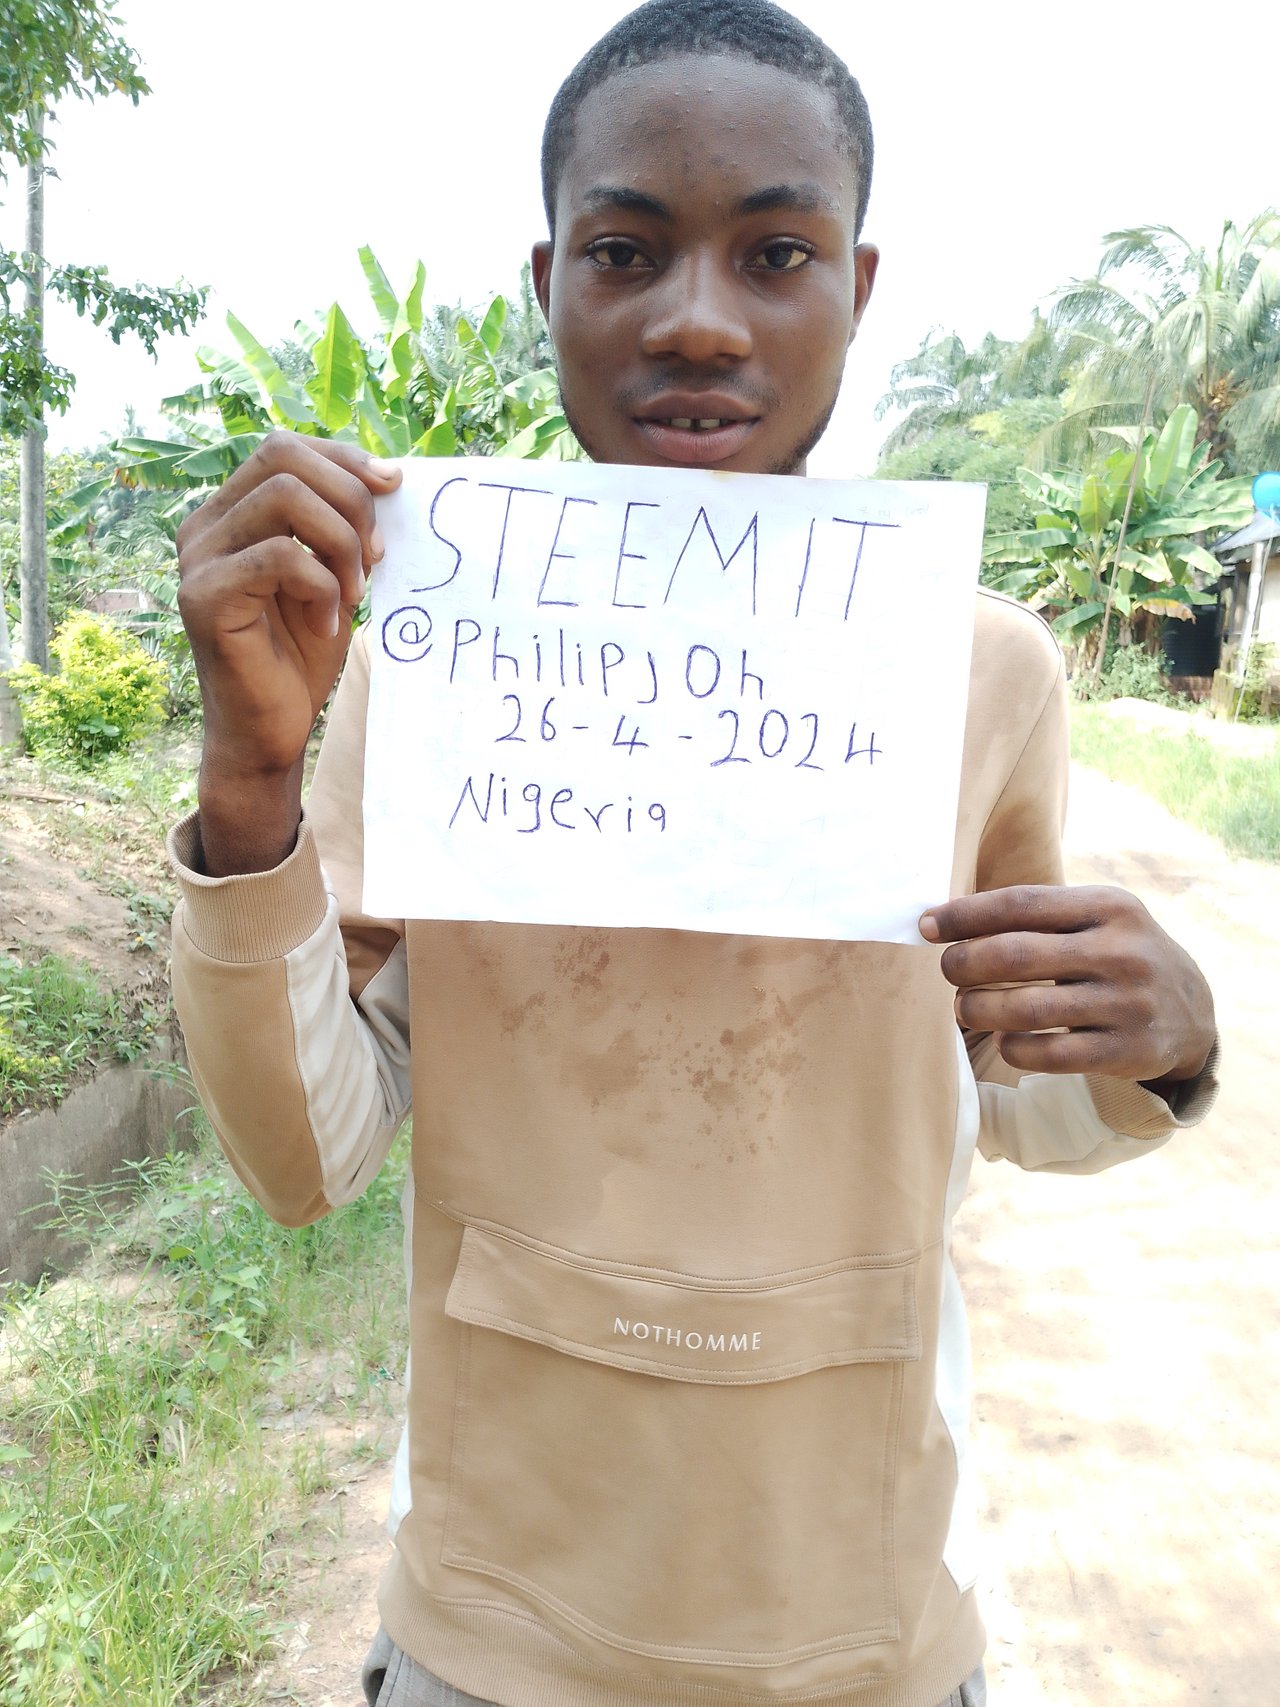 STEEMIT
@PhilipjOh
26-4-2024
Nigeria
NOTHOMME